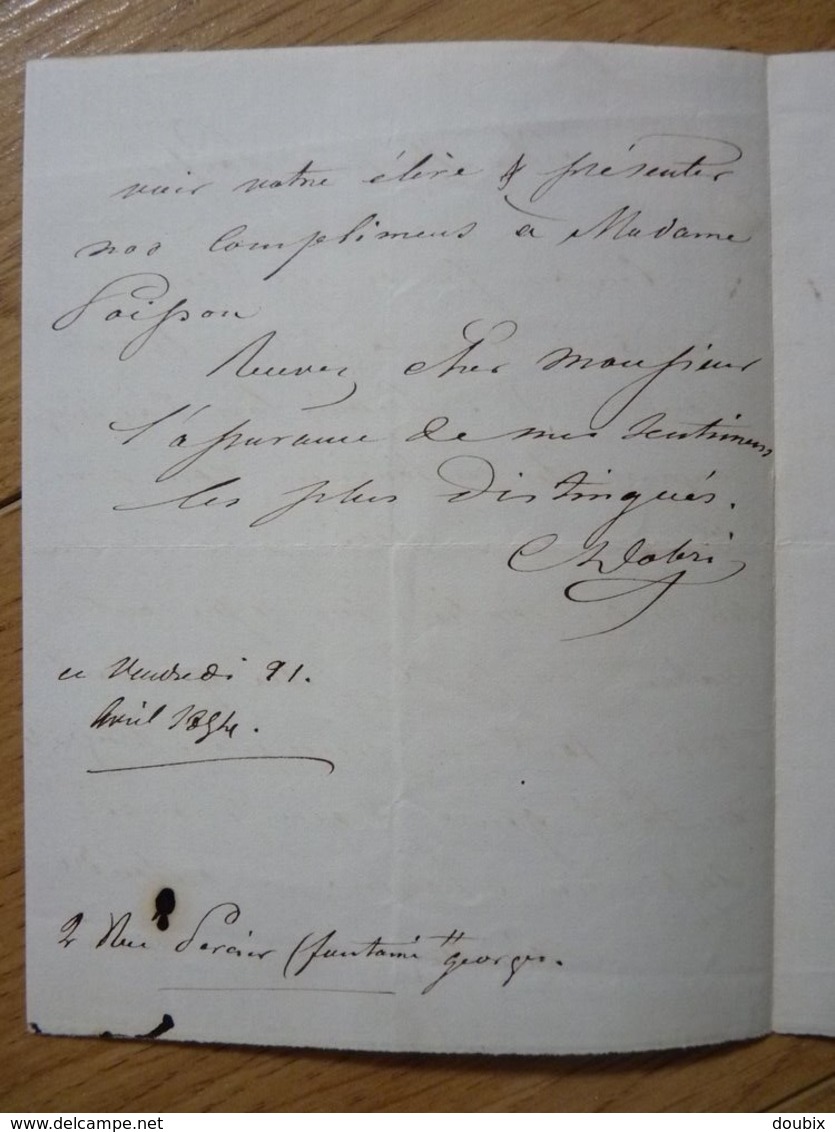 voir votre élève & présenter
nos complimens à Madame
Poisson
Recevez cher monsieur
l'assurance de mes sentimens
les plus distingués.
ce Vendredi 21.
Avril 1854.
2 Rue (fontaine Georges.
www.delcampe.net
doubix